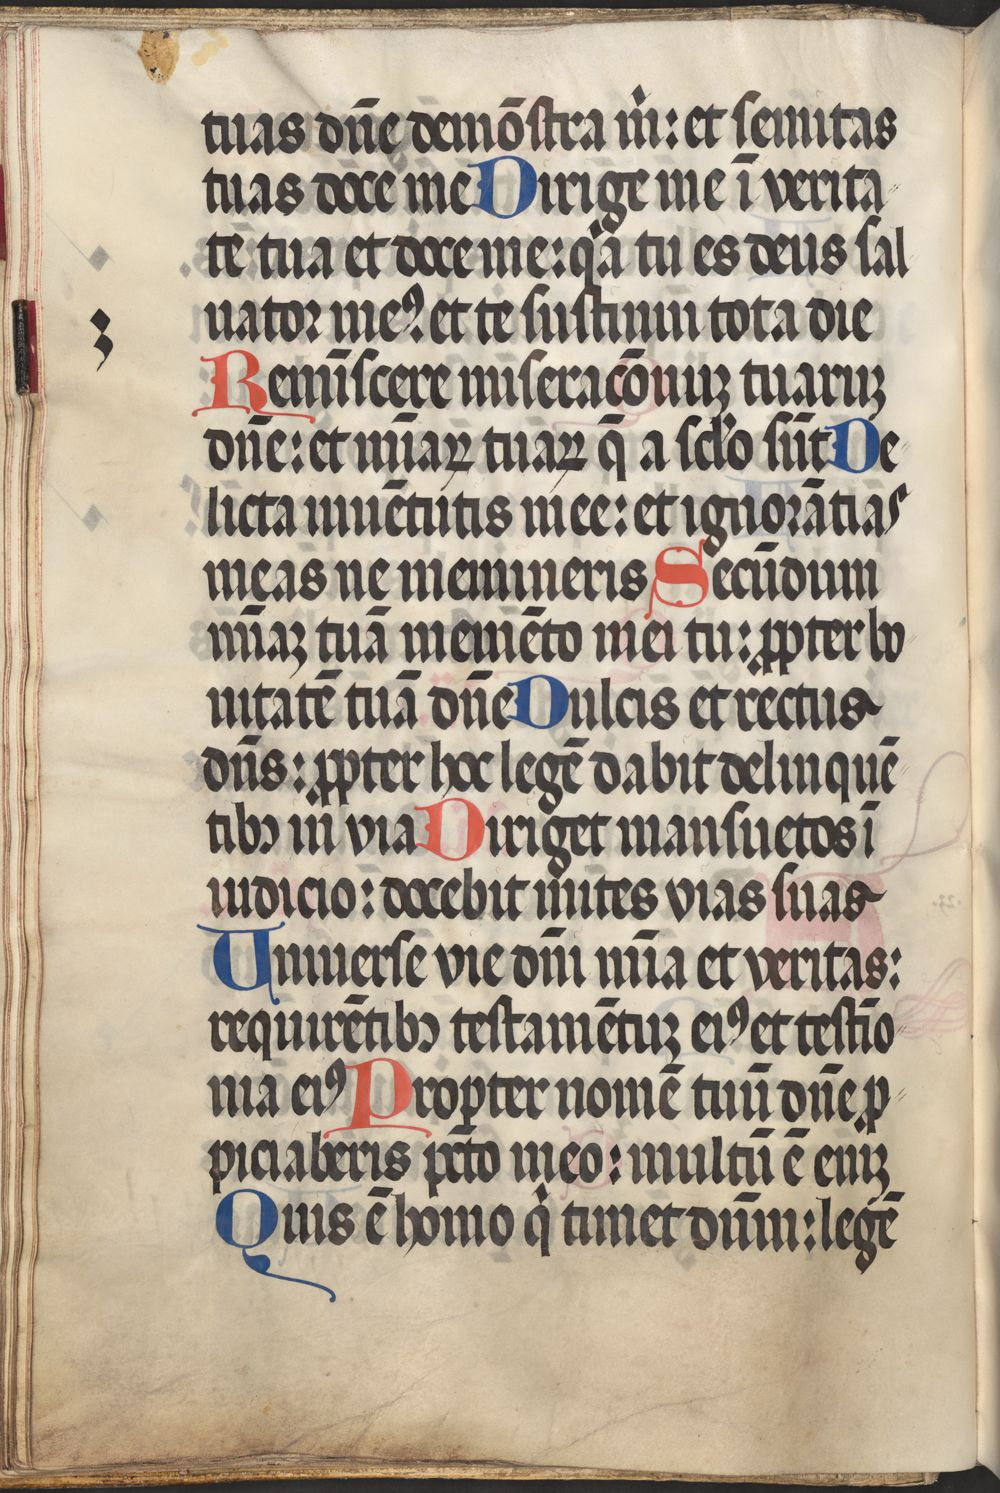 tuas dn̄e demōstra m̍: et semitas
tuas doce me Dirige me ī verita
te tua et doce me: qͣa tu es deus sal
uator meꝰ et te sustinui tota die
Remīscere miseracōnuꝫ tuaruꝫ
dn̄e: et mīaꝝ tuaꝝ q̄ a sclo sūt De
licta iuuētutis mee: et ignorātias
meas ne memineris Secūdum
mīaꝫ tuā memēto mei tu: ꝓpter bo
nitatē tuā dn̄e Dulcis et rectus
dn̄s: ꝓpter hoc legē dabit delinquē
tibꝫ in via Diriget mansuetos ī
iudicio: docebit mites vias suas
Uniuerse vie dn̄i mīa et veritas:
requirētibꝫ testamētuꝫ eiꝰ et testīo
nia eiꝰ Propter nomē tuū dn̄e ꝓ
piciaberis pctō meo: multū ē eniꝫ
Quis ē homo qͥ timet dn̄m: legē